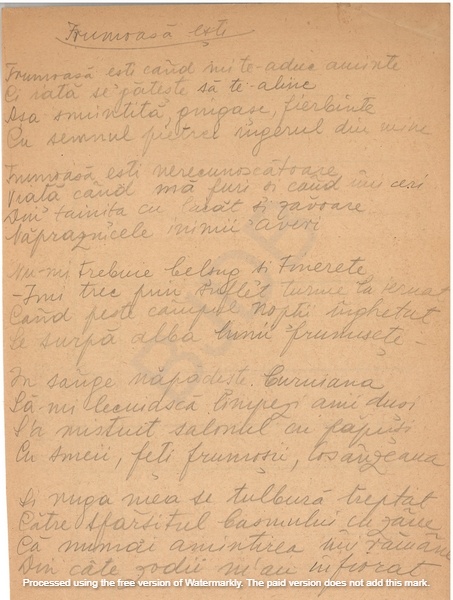 Frumoasă ești
Frumoasă ești când mi te-aduc aminte
Ci iată se gătește să te-aline
Așa smintită, gingașe, fierbinte
Cu semnul pietrei îngerul din mine
Frumoasă ești nerecunoscătoare
Viață când mă furi și când îmi ceri
Din taința cu lacăt și zăvoare
Năpraznicele inimii averi
Nu-mi trebuie belșug și tinerețe
-Imi trec prin suflet turme la iernat
Când peste câmpul nopții înghețat
Se surpă alba lunii frumusețe-
In sânge năpădește buruiana
Să-mi lecuiască limpezi anii duși
S'a mistuit salonul cu păpuși
Cu smeii, feți frumoși, cosânzeana
Și ruga mea se tulbură treptat
Către sfârșitul basmului cu zâne
Că numai amintirea îmi rămâne
Din câte zodii m'au înfiorat
Processed using the free version of Watermarkly. The paid version does not add this mark.